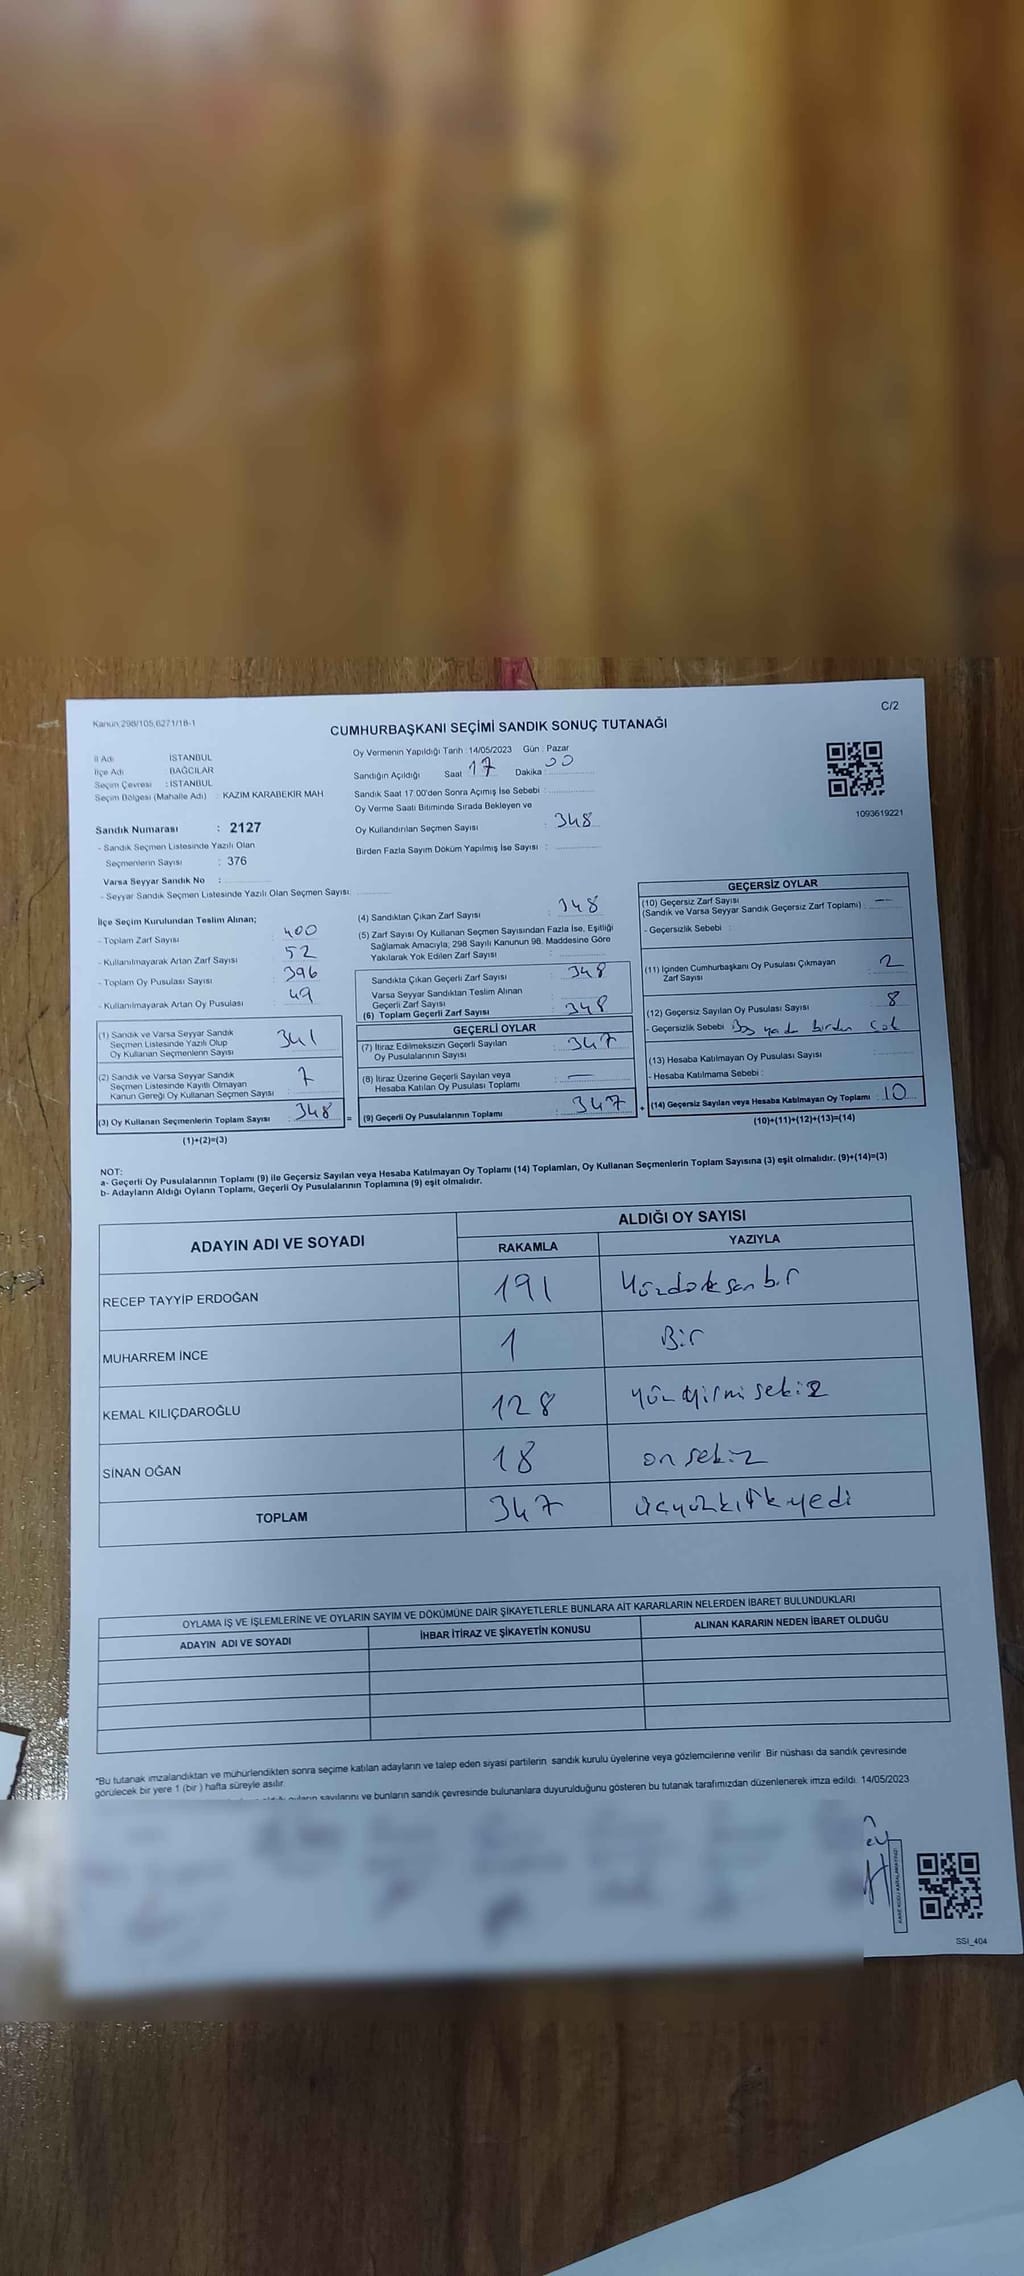 Kanun 298/105,6271/18-1
C/2
CUMHURBAŞKANI SEÇİMİ SANDIK SONUÇ TUTANAĞI
İl Adı : İSTANBUL
İlçe Adı : BAĞCILAR
Seçim Çevresi : İSTANBUL
Seçim Bölgesi (Mahalle Adı) : KAZIM KARABEKİR MAH
Sandık Numarası : 2127
- Sandık Seçmen Listesinde Yazılı Olan
Seçmenlerin Sayısı : 376
Varsa Seyyar Sandık No :
- Seyyar Sandık Seçmen Listesinde Yazılı Olan Seçmen Sayısı:
Oy Vermenin Yapıldığı Tarih : 14/05/2023 Gün : Pazar
Sandığın Açıldığı Saat 17 Dakika : 00
Sandık Saat 17:00'den Sonra Açımış İse Sebebi :
Oy Verme Saati Bitiminde Sırada Bekleyen ve
Oy Kullandırılan Seçmen Sayısı : 348
Birden Fazla Sayım Döküm Yapılmış İse Sayısı :
1093619221
İlçe Seçim Kurulundan Teslim Alınan;
- Toplam Zarf Sayısı : 400
- Kullanılmayarak Artan Zarf Sayısı : 52
- Toplam Oy Pusulası Sayısı : 396
- Kullanılmayarak Artan Oy Pusulası : 49
(1) Sandık ve Varsa Seyyar Sandık
Seçmen Listesinde Yazılı Olup
Oy Kullanan Seçmenlerin Sayısı : 341
(2) Sandık ve Varsa Seyyar Sandık
Seçmen Listesinde Kayıtlı Olmayan
Kanun Gereği Oy Kullanan Seçmen Sayısı : 7
(3) Oy Kullanan Seçmenlerin Toplam Sayısı : 348 =
(1)+(2)=(3)
(4) Sandıktan Çıkan Zarf Sayısı : 348
(5) Zarf Sayısı Oy Kullanan Seçmen Sayısından Fazla İse, Eşitliği
Sağlamak Amacıyla, 298 Sayılı Kanunun 98. Maddesine Göre
Yakılarak Yok Edilen Zarf Sayısı :
Sandıkta Çıkan Geçerli Zarf Sayısı : 348
Varsa Seyyar Sandıktan Teslim Alınan
Geçerli Zarf Sayısı
(6) Toplam Geçerli Zarf Sayısı : 348
GEÇERLİ OYLAR
(7) İtiraz Edilmeksizin Geçerli Sayılan
Oy Pusulalarının Sayısı : 347
(8) İtiraz Üzerine Geçerli Sayılan veya
Hesaba Katılan Oy Pusulası Toplamı : —
(9) Geçerli Oy Pusulalarının Toplamı : 347 +
GEÇERSİZ OYLAR
(10) Geçersiz Zarf Sayısı
(Sandık ve Varsa Seyyar Sandık Geçersiz Zarf Toplamı) : —
- Geçersizlik Sebebi :
(11) İçinden Cumhurbaşkanı Oy Pusulası Çıkmayan
Zarf Sayısı : 2
(12) Geçersiz Sayılan Oy Pusulası Sayısı : 8
- Geçersizlik Sebebi : Boş yada birden çok
(13) Hesaba Katılmayan Oy Pusulası Sayısı :
- Hesaba Katılmama Sebebi :
(14) Geçersiz Sayılan veya Hesaba Katılmayan Oy Toplamı : 10
(10)+(11)+(12)+(13)=(14)
NOT:
a- Geçerli Oy Pusulalarının Toplamı (9) ile Geçersiz Sayılan veya Hesaba Katılmayan Oy Toplamı (14) Toplamları, Oy Kullanan Seçmenlerin Toplam Sayısına (3) eşit olmalıdır. (9)+(14)=(3)
b- Adayların Aldığı Oyların Toplamı, Geçerli Oy Pusulalarının Toplamına (9) eşit olmalıdır.
ADAYIN ADI VE SOYADI
ALDIĞI OY SAYISI
RAKAMLA YAZIYLA
RECEP TAYYİP ERDOĞAN 191 Yüzdoksanbir
MUHARREM İNCE 1 Bir
KEMAL KILIÇDAROĞLU 128 yüzyirmisekiz
SİNAN OĞAN 18 onsekiz
TOPLAM 347 üçyüzkırkyedi
OYLAMA İŞ VE İŞLEMLERİNE VE OYLARIN SAYIM VE DÖKÜMÜNE DAİR ŞİKAYETLERLE BUNLARA AİT KARARLARIN NELERDEN İBARET BULUNDUKLARI
ADAYIN ADI VE SOYADI İHBAR İTİRAZ VE ŞİKAYETİN KONUSU ALINAN KARARIN NEDEN İBARET OLDUĞU
*Bu tutanak imzalandıktan ve mühürlendikten sonra seçime katılan adayların ve talep eden siyasi partilerin sandık kurulu üyelerine veya gözlemcilerine verilir. Bir nüshası da sandık çevresinde
görülecek bir yere 1 (bir) hafta süreyle asılır.
oyların sayılarını ve bunların sandık çevresinde bulunanlara duyurulduğunu gösteren bu tutanak tarafımızdan düzenlenerek imza edildi. 14/05/2023
SSI_404